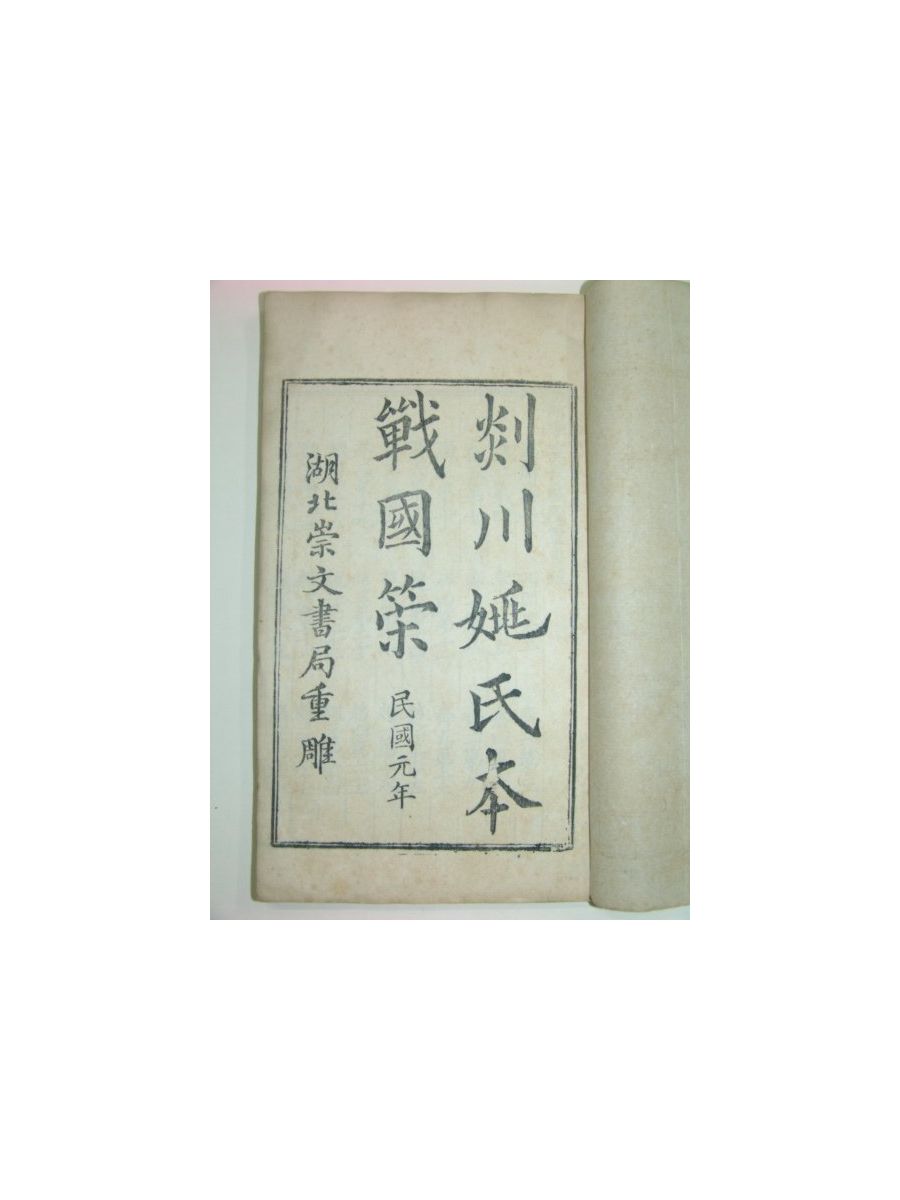 剡川姚氏本
戰國策 民國元年
湖北崇文書局重雕